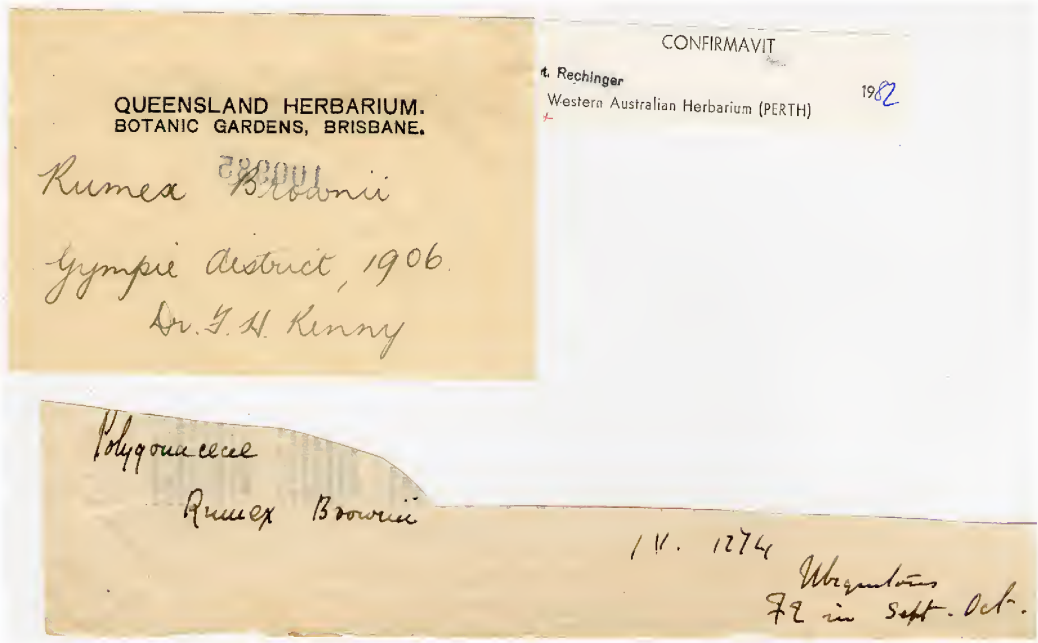 QUEENSLAND HERBARIUM.
BOTANIC GARDENS, BRISBANE.
100985
Rumex Brownii
Gympie district, 1906.
Dr. F. H. Kenny
CONFIRMAVIT
t. Rechinger
1982
Western Australian Herbarium (PERTH)
Polygonaceae
Rumex Brownii
IV. 1274
Ubiquitous
Fl in Sept. Oct.